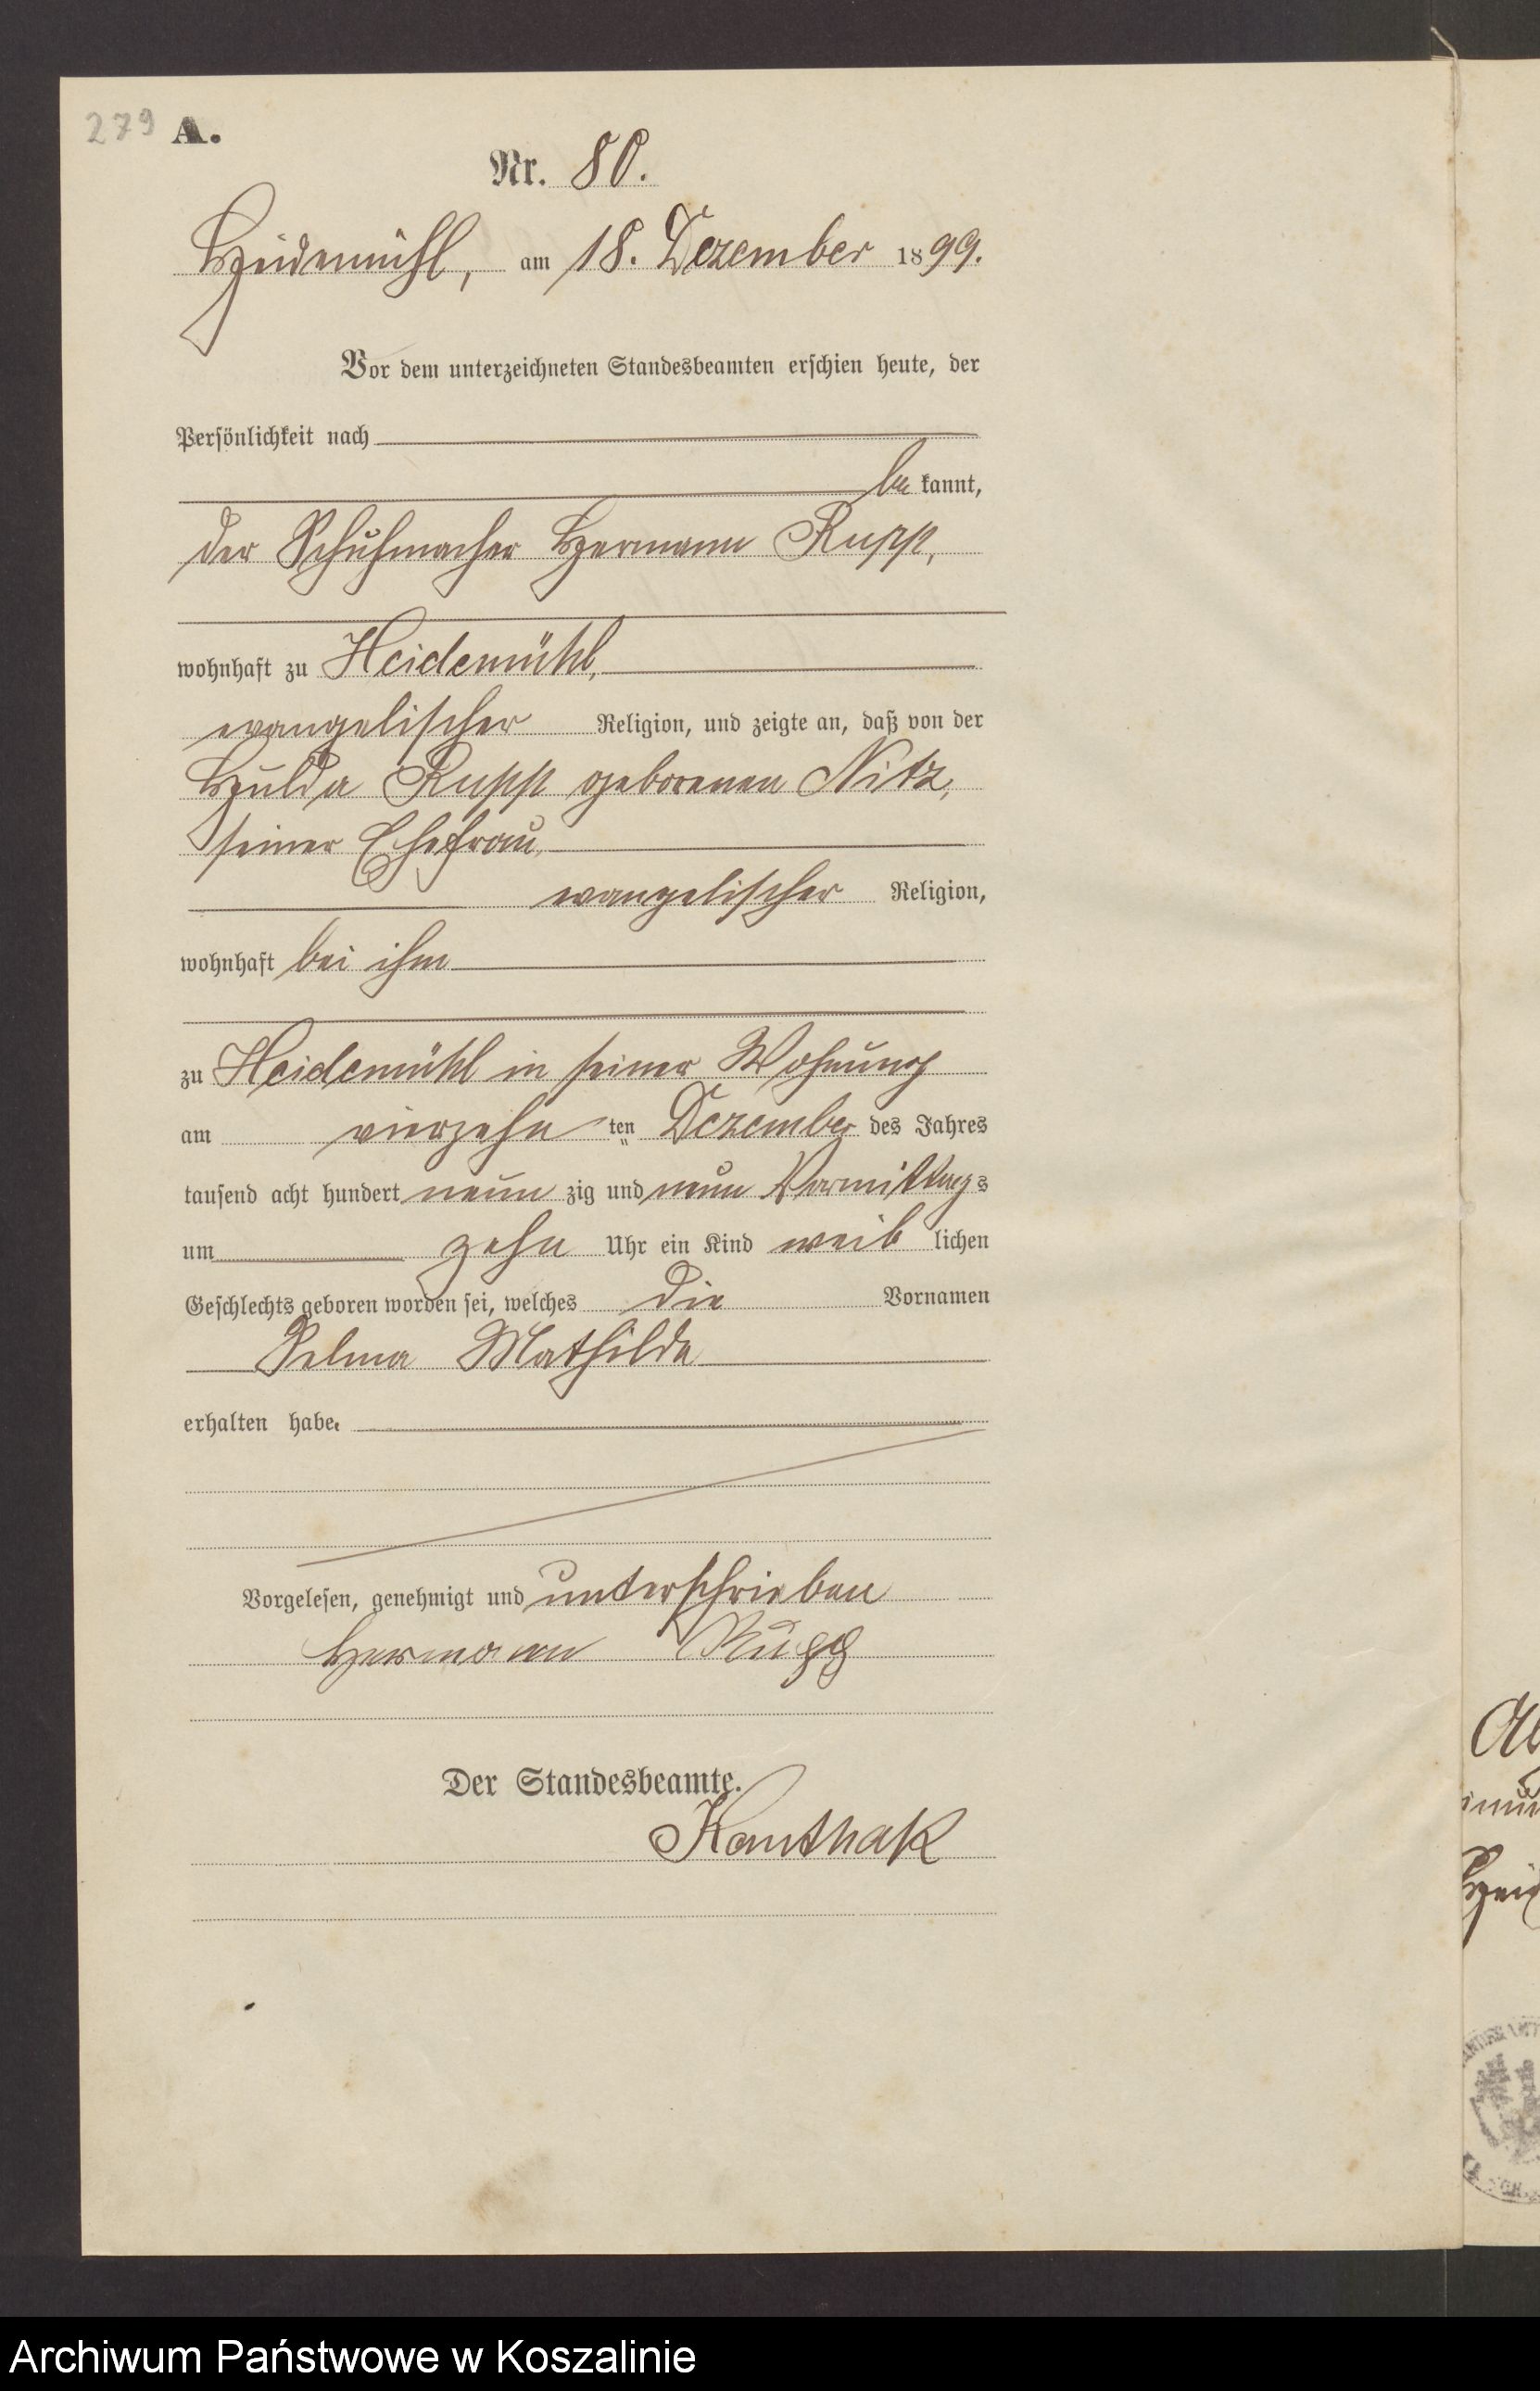 279 A.
Nr. 80.
Heidemühl, am 18. Dezember 1899.
Vor dem unterzeichneten Standesbeamten erschien heute, der
Persönlichkeit nach
be kannt,
der Schuhmacher Hermann Rupp,
wohnhaft zu Heidemühl,
evangelischer Religion, und zeigte an, daß von der
Hulda Rupp geborenen Nitz,
seiner Ehefrau,
evangelischer Religion,
wohnhaft bei ihm
zu Heidemühl in seiner Wohnung
am vierzehn ten Dezember des Jahres
tausend acht hundert neun zig und neun Vormittags
um zehn Uhr ein Kind weib lichen
Geschlechts geboren worden sei, welches die Vornamen
Selma Mathilde
erhalten habe.
Vorgelesen, genehmigt und unterschrieben
Hermann Rupp
Der Standesbeamte.
Kanthak
Archiwum Państwowe w Koszalinie